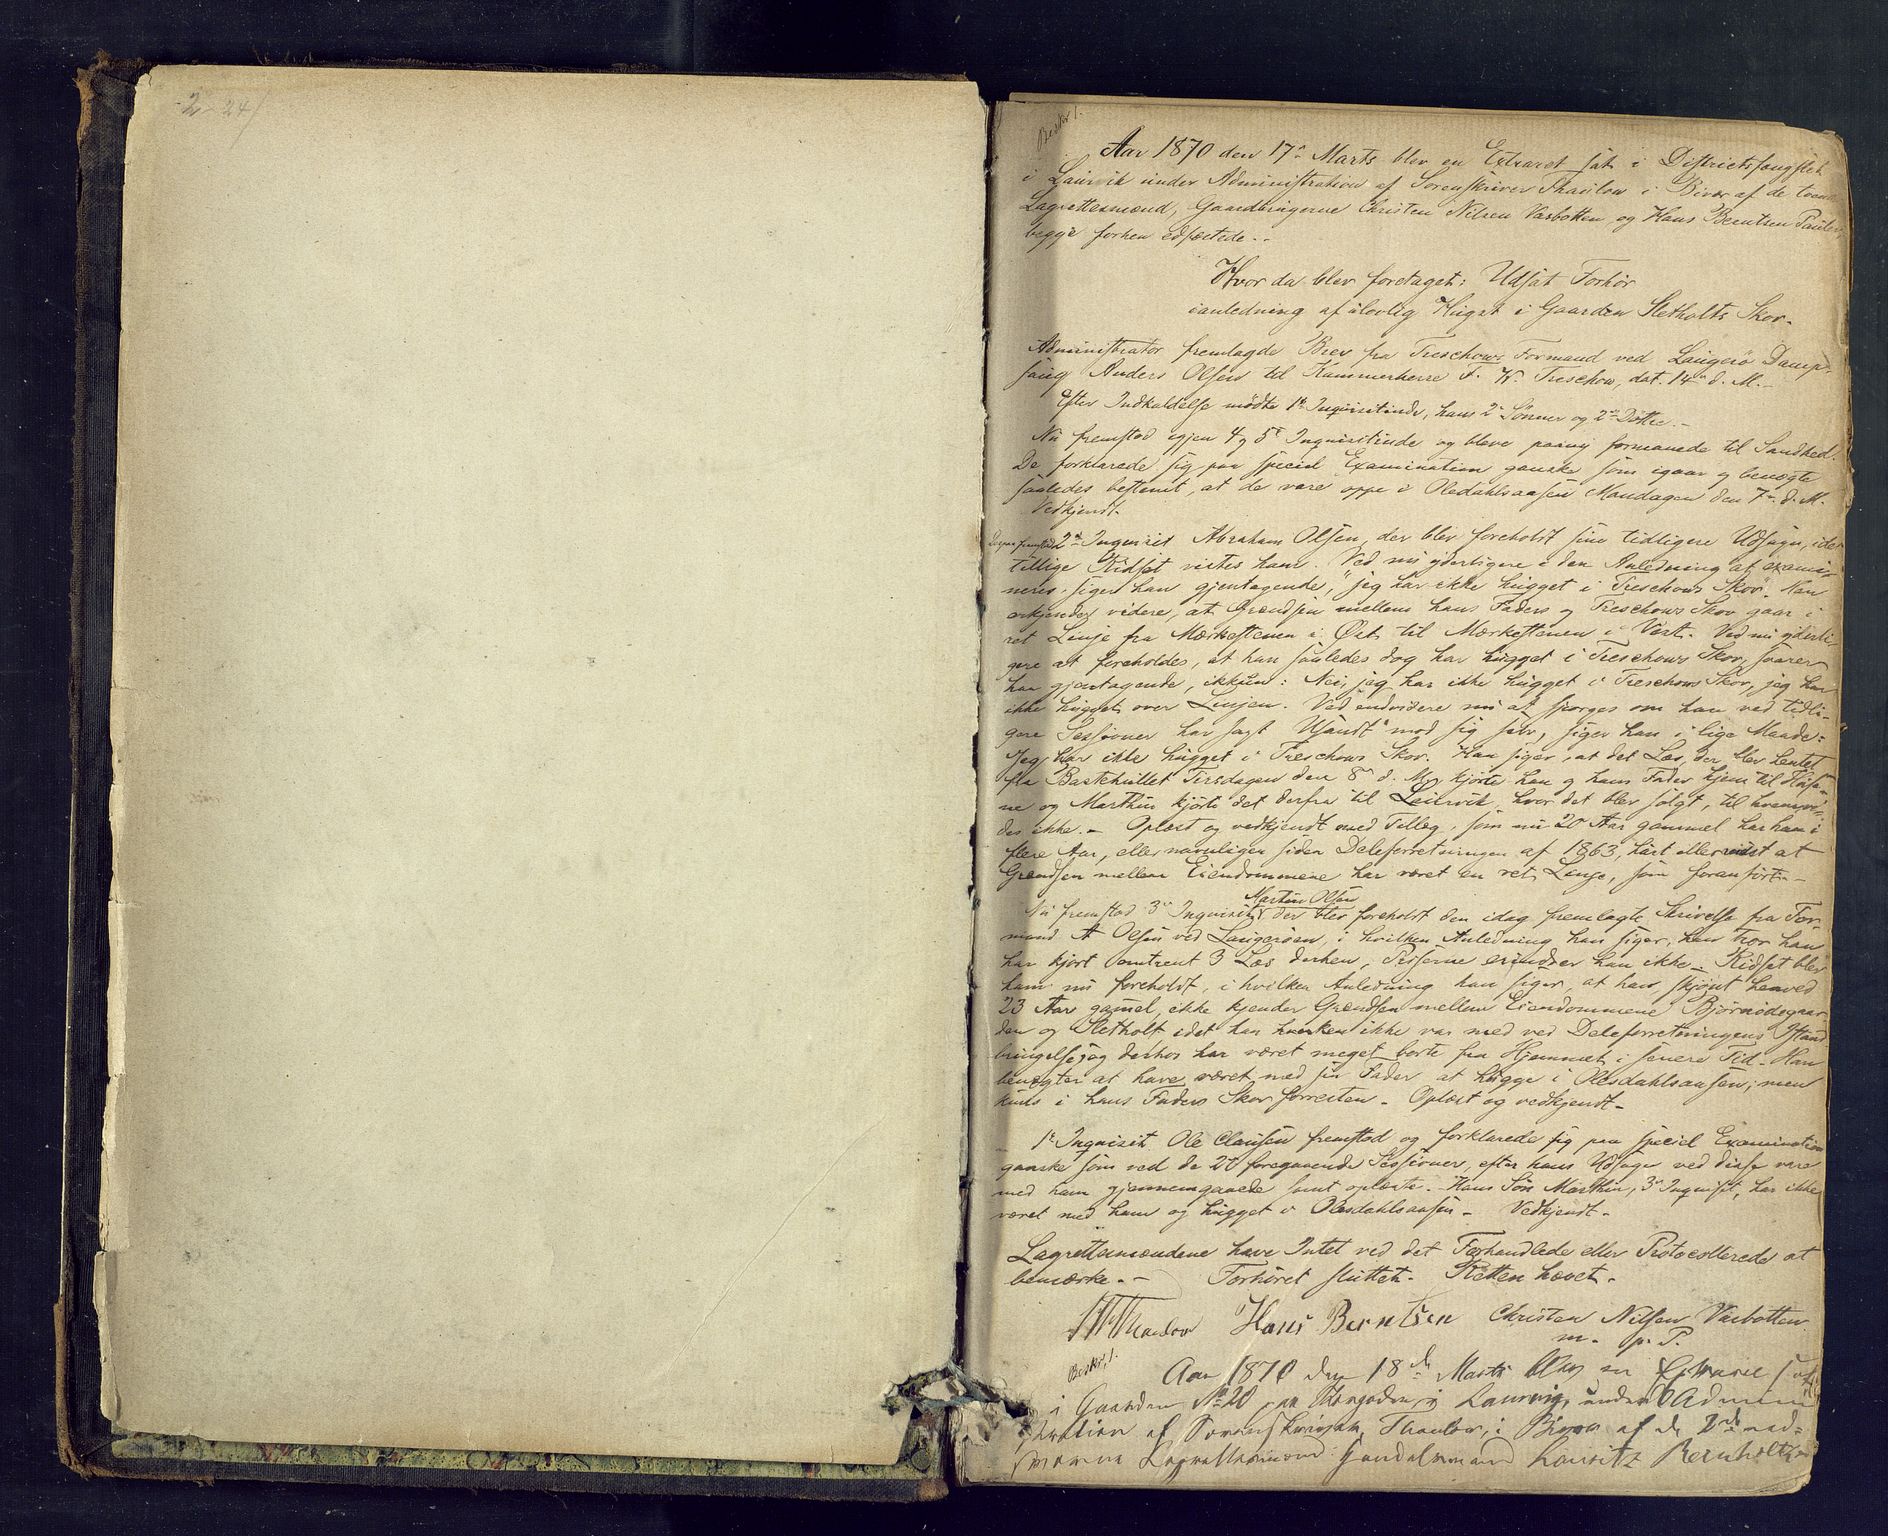 2 24/
Beskr. 1.
Aar 1870 den 17de Marts blev en Extraret sat i Districtsfængslet
i Laurvik under Administration af Sorenskriver Thaulow i Bivær af de tvende
Lagrettesmænd, Gaardbrugerne Christen Nilsen Vasbotten og Hans Berntsen Pauler,
begge forhen edfæstede.-
Hvor da blev foretaget: Udsat Forhør
i anledning af ulovlig Hugst i Gaarden Sletholts Skov.
Administrator fremlagde Brev fra Treschows Formand ved Langerø Damp-
saug Anders Olsen til Kammerherre F. W. Treschow, dat. 14de d. M.-
Efter Indkaldelse mødte 1ste Inquisitinde, hans 2de Sønner og 2de Døttre.-
Nu fremstod igjen 4 og 5te Inquisitinde og bleve paany formanede til Sandhed.
De forklarede sig paa special Examination ganske som igaar og benægte
saaledes bestemt, at de vare oppe i Olesdahlsaasen Mandagen den 7de d. M.
Vedkjendt.
Derpaa fremstod 2den Inquisit Abraham Olsen, der blev foreholdt sine tidligere Udsagn, idet
tillige Ridset vistes ham. Ved nu yderligere i den Anledning at exami-
neres, siger han gjentagende, "jeg har ikke hugget i Treschows Skov". Han
erkjender videre, at Grændsen mellem hans Faders og Treschows Skov gaar i
ret Linje fra Mærkestenen i Øst til Mærkestenen i Vest. Ved nu yderli-
gere at foreholdes, at han saaledes dog har hugget i Treschows Skov, svarer
han gjentagende, ikkun: Nei, jeg har ikke hugget i Treschows Skov, jeg har
ikke hugget over Linjen. Ved endvidere nu at spørges om han ved tidli-
gere Sessioner har sagt Usandt mod sig selv, siger han i lige Maade:
Jeg har ikke hugget i Treschows Skov. Han siger, at det Læs, der blev hentet
fra Bastehullet Tirsdagen den 8de d. M., kjørte han og hans Fader hjem til Huse-
ne og Marthin kjørte det derfra til Laurvik, hvor det blev solgt, til hvem vi-
des ikke.- Oplæst og vedkjendt med Tillæg, som nu 20 Aar gammel har han i
flere Aar, eller navnligen siden Deleforretningen af 1863, hørt eller vidst at
Grændsen mellem Eiendommene har været en ret Linje, som foranført.-
Nu fremstod 3de Inquisit Martin Olsen der blev foreholdt den idag fremlagte Skrivelse fra For-
mand A Olsen ved Langerøen, i hvilken Anledning han siger, han tror han
har kjørt omtrent 3 Læs derhen, Priserne erindrer han ikke.- Ridset blev
ham nu foreholdt, i hvilken Anledning han siger, at han, skjønt henved
23 Aar gammel, ikke kjender Grændsen mellem Eiendommene Bjørnødegaar-
den og Sletholt idet han hverken ikke var med ved Deleforretningens Istand-
bringelse, og derhos har været meget borte fra Hjemmet i senere Tid. Han
benægter at have været med sin Fader at hugge i Olesdahlsaasen; men
kuns i hans Faders Skov forresten.- Oplæst og vedkjendt.-
1ste Inquisit Ole Clausen fremstod og forklarede sig paa special Examination
ganske som ved de 2de foregaaende Sessioner, efter hans Udsagn ved disse vare
med ham gjennemgaaede samt oplæste.- Hans Søn Marthin, 3de Inquisit, har ikke
været med ham og hugget i Olesdahlsaasen.- Vedkjendt.-
Lagrettesmændene have Intet ved det Forhandlede eller Protocollerede at
bemærke.- Forhøret sluttet. Retten hævet.-
Thaulow Hans Berntsen Christen Nilsen Vasbotten
m. p. P.
Beskr. 1.
Aar 1870 den 18de Marts blev en Extraret sat
i Gaarden No 20 paa i Laurvig, under Admini-
stration af Sorenskriver Thaulow, i Bivær af de 2de ed-
svorne Lagrettesmænd Gaardmænd Lauritz Bernholtsen